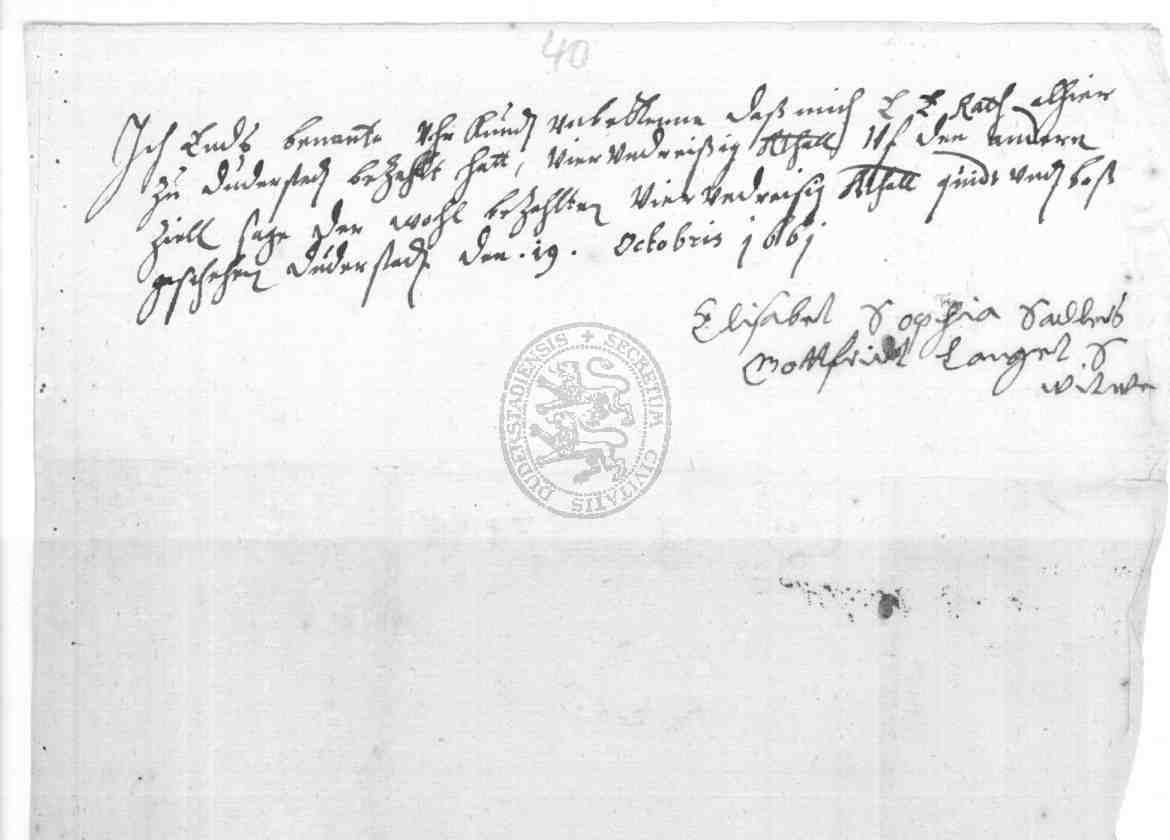 40
Ich Ends benante Uhrkundt undt bekenne daß mich E E Rath alhier
zu duderstadt bezahlt hatt, Vier undreißig Rthall Uf den andern
Ziell sage der wohl bezahlten Vier undreisig Rthall quidt undt loß
geschehen duderstadt den . 19 . Octobris 1661
Elisabet Sophia Sadlers
Gottfridt Langel S
witwe
SECRETUM CIVITATIS DUDERSTADIENSIS